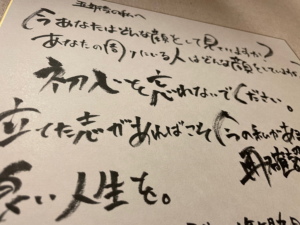 五年後の私へ
今あなたはどんな顔をして見ていますか？
あなたの周りにいる人はどんな顔をしています
初心を忘れないでください。
立てた志があればこそ今の私があ
再確認
良い人生を。